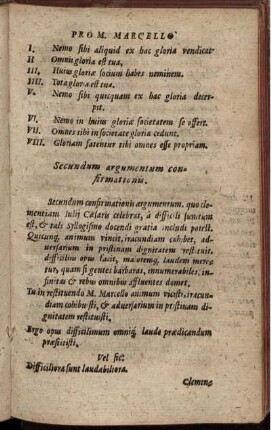 PRO M. MARCELLO
I. Nemo sibi aliquid ex hac gloria vendicat
II Omnis gloria est tua.
III. Huius gloriæ socium habes neminem.
IIII. Tota gloria est tua.
V. Nemo sibi quicquam ex hac gloria decer-
pit.
VI. Nemo in huius gloriæ societatem se offert.
VII. Omnes tibi in societate gloria cedunt.
VIII. Gloriam fatentur tibi omnes esse propriam.
Secundum argumentum con-
firmationis.
Secundum confirmationis argumentum, quo cle-
mentiam Iulij Cæsaris celebrat, à difficili sumtum
est, & tali Syllogismo docendi gratia includi potest.
Quicunq; animum vincit, iracundiam cohibet, ad-
versarium in pristinam dignitatem restituit,
difficilius opus facit, maioremq; laudem mere-
tur, quam si gentes barbaras, innumerabiles, in-
finitas & rebus omnibus affluentes domet,
Tu in restituendo M. Marcello animum vicisti, iracun-
diam cohibuisti, & adversarium in pristinam di-
gnitatem restituisti.
Ergo opus difficilimum omniq; laude prædicandum
præstitisti.
Vel sic:
Difficiliora sunt laudabiliora.
Clemen&